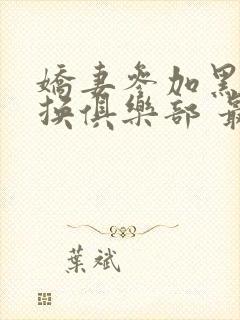 嬌妻參加黑
換俱樂部 最
葉斌